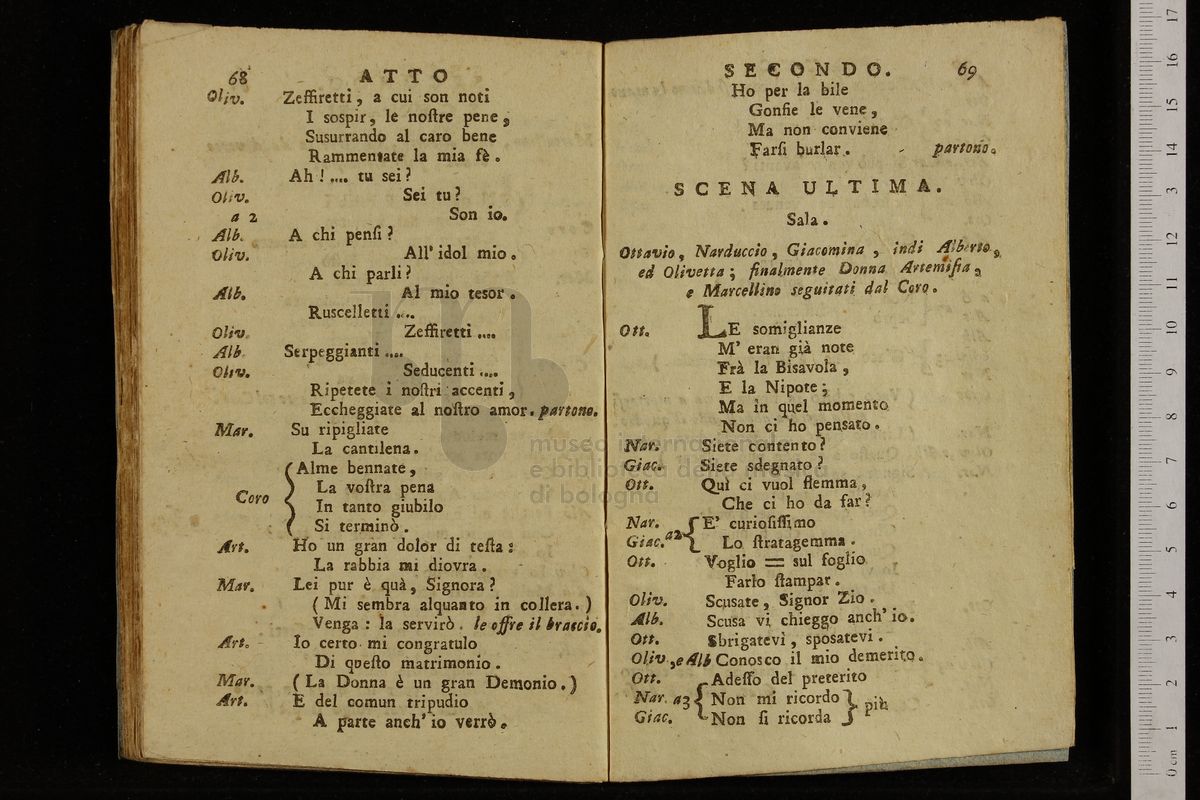 68 ATTO
Oliv. Zeffiretti, a cui son noti
I sospir, le noſtre pene,
Susurrando al caro bene
Rammentate la mia fè.
Alb. Ah!.... tu sei?
Oliv. Sei tu?
a 2 Son io.
Alb. A chi penſi?
Oliv. All' idol mio.
A chi parli?
Alb. Al mio tesor.
Ruscelletti ....
Oliv. Zeffiretti ....
Alb. Serpeggianti ....
Oliv. Seducenti ....
Ripetete i noſtri accenti,
Eccheggiate al noſtro amor. partono.
Mar. Su ripigliate
La cantilena.
Coro Alme bennate,
La voſtra pena
In tanto giubilo
Si terminò.
Art. Ho un gran dolor di teſta:
La rabbia mi diovra.
Mar. Lei pur è quà, Signora?
(Mi sembra alquanto in collera.)
Venga: la servirò. le offre il braccio.
Art. Io certo mi congratulo
Di queſto matrimonio.
Mar. (La Donna è un gran Demonio.)
Art. E del comun tripudio
A parte anch' io verrò.
SECONDO. 69
Ho per la bile
Gonfie le vene,
Ma non conviene
Farſi burlar. - partono.
SCENA ULTIMA.
Sala.
Ottavio, Narduccio, Giacomina, indi Alberto,
ed Olivetta; finalmente Donna Artemiſia,
e Marcellino seguitati dal Coro.
Ott. LE somiglianze
M' eran già note
Frà la Bisavola,
E la Nipote;
Ma in quel momento
Non ci ho pensato.
Nar. Siete contento?
Giac. Siete sdegnato?
Ott. Quì ci vuol flemma,
Che ci ho da far?
Nar. E' curioſiſſimo
Giac. a2 Lo ſtratagemma.
Ott. Voglio = sul foglio
Farlo ſtampar.
Oliv. Scusate, Signor Zio.
Alb. Scusa vi chieggo anch' io.
Ott. Sbrigatevi, sposatevi.
Oliv., e Alb Conosco il mio demerito.
Ott. Adeſſo del preterito
Nar. a3 Non mi ricordo più
Giac. Non ſi ricorda
museo internazionale
e biblioteca della musica
di bologna
0 cm 1 2 3 4 5 6 7 8 9 10 11 12 13 14 15 16 17